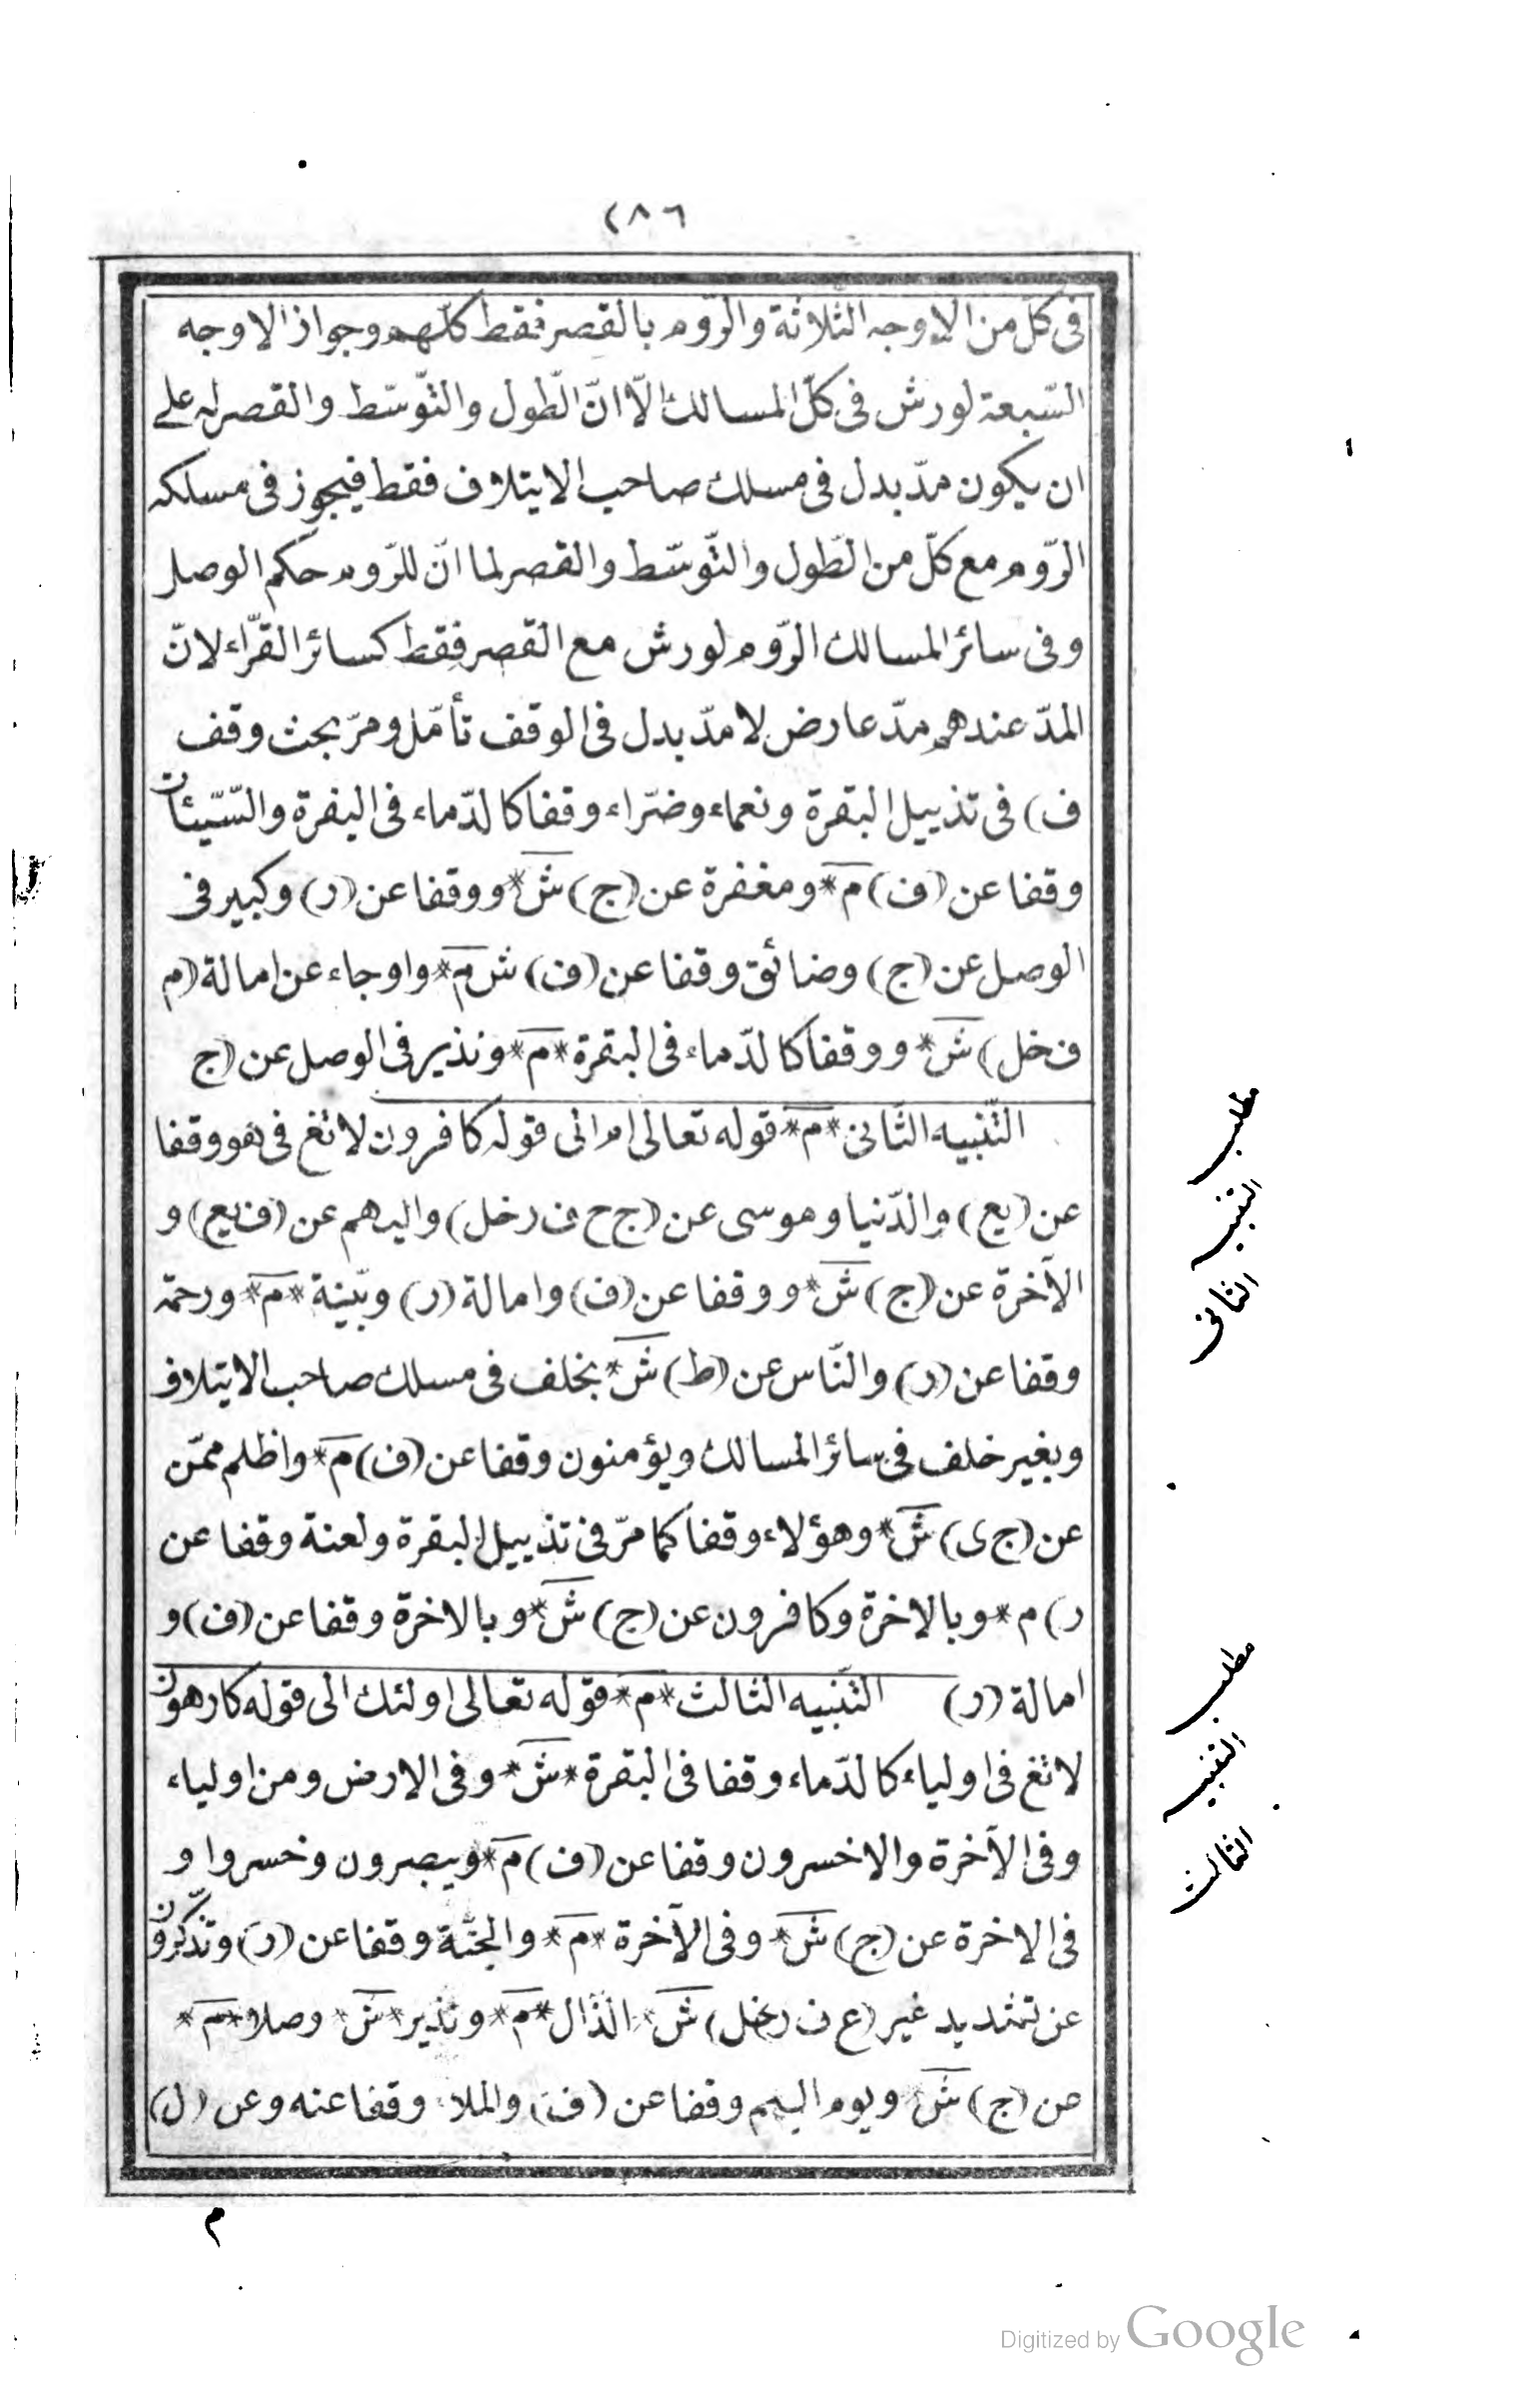 ٢٨٦
فى كلّ من الاوجه الثلاثة والرّوم بالقصر فقط كلّهم وجواز الاوجه
السّبعة لورش فى كلّ المسالك الّا انّ الطّول والتّوسّط والقصر له على
ان يكون مدّ بدل فى مسلك صاحب الايتلاف فقط فيجوز فى مسلكه
الرّوم مع كلّ من الطّول والتّوسّط والقصر لما انّ للرّوم حكم الوصل
وفى سائر المسالك الرّوم لورش مع القصر فقط كسائر القرّاء لانّ
المدّ عندهم مدّ عارض لا مدّ بدل فى الوقف تأمّل ومرّ بحث وقف
ف) فى تذييل البقرة ونعماء وضرّاء وقفا كالدّماء فى البقرة والسّيّئات
وقفا عن (ف) م * ومغفرة عن (ج) ش * ووقفا عن (ر) وكبير فى
الوصل عن (ج) وضائق وقفا عن (ف) ش م * واو جاء عن امالة (م
ف خل) ش * ووقفا كالدّماء فى البقرة * م * ونذير فى الوصل عن (ج
التّنبيه الثّانى * م * قوله تعالى ام الى قوله كافرون لا تغ فى هو ووقفا
عن (يع) والدّنيا وموسى عن (ج ح ف ر خل) واليهم عن (ف يع) و
الآخرة عن (ج) ش * ووقفا عن (ف) وامالة (ر) وبيّنة * م * ورحمة
وقفا عن (ر) والنّاس عن (ط) ش * بخلف فى مسلك صاحب الايتلاف
وبغير خلف فى سائر المسالك ويؤمنون وقفا عن (ف) م * واظلم ممّن
عن (ج ى) ش * وهؤلاء وقفا كما مرّ فى تذييل البقرة ولعنة وقفا عن
ر) م * وبالاخرة وكافرون عن (ج) ش * وبالاخرة وقفا عن (ف) و
امالة (ر) التّنبيه الثالث * م * قوله تعالى اولئك الى قوله كارهون
لا تغ فى اولياء كالدّماء وقفا فى البقرة * ش * وفى الارض ومن اولياء
وفى الآخرة والاخسرون وقفا عن (ف) م * ويبصرون وخسروا و
فى الاخرة عن (ج) ش * وفى الآخرة * م * والجنّة وقفا عن (ر) وتذّكرون
عن تشديد غير (ع ف ر خل) ش * الذّال * م * ونذير * ش * وصلا * م *
عن (ج) ش * ويوم اليم وقفا عن (ف) والملاء وقفا عنه وعن (ل)
م
مطلب التنبيه الثانى
مطلب التنبيه الثالث
Digitized by Google